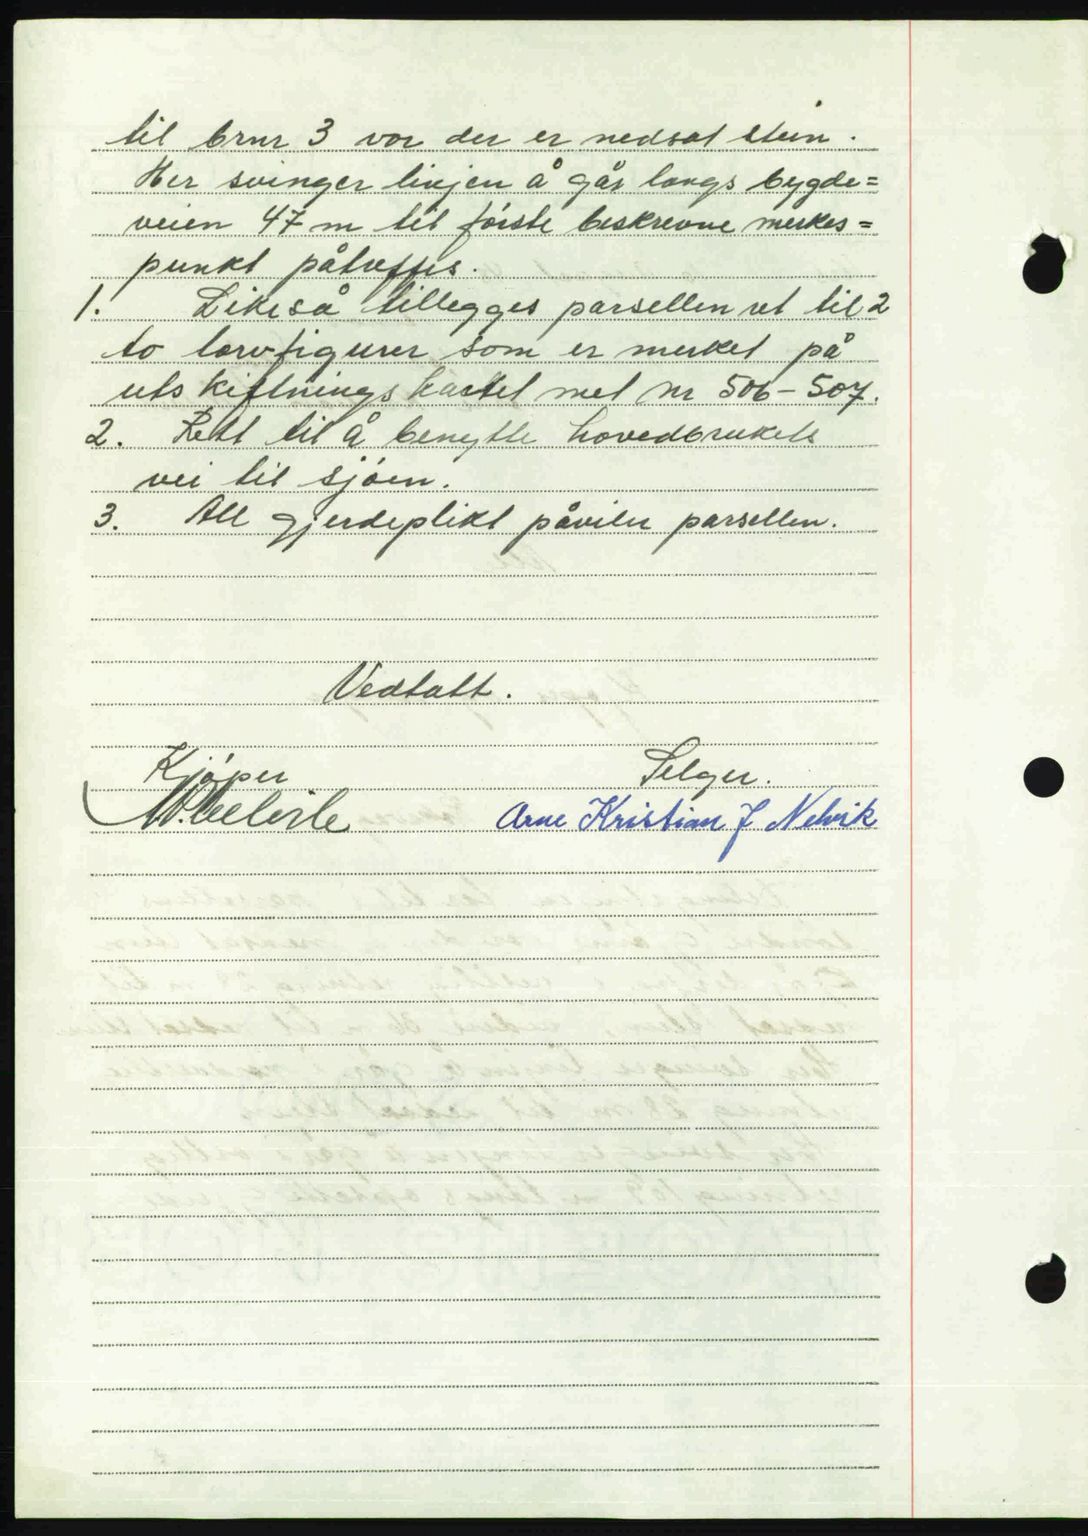 til brnr 3 vor der er nedsat stein.
Her svinger linjen å går langs bygde=
veien 47 m til første beskrevne merkes=
punkt påtreffes.
1. Likeså tillegges parsellen ret til 2
to torvfigurer som er merket på
utskiftningskartet met nr 506-507.
2. Rett til å benytte hovedbrukets
vei til sjøen.
3. All gjerdeplikt påviler parsellen.
Vedtatt.
Kjøper Selger.
Arne Kristian J Nelvik